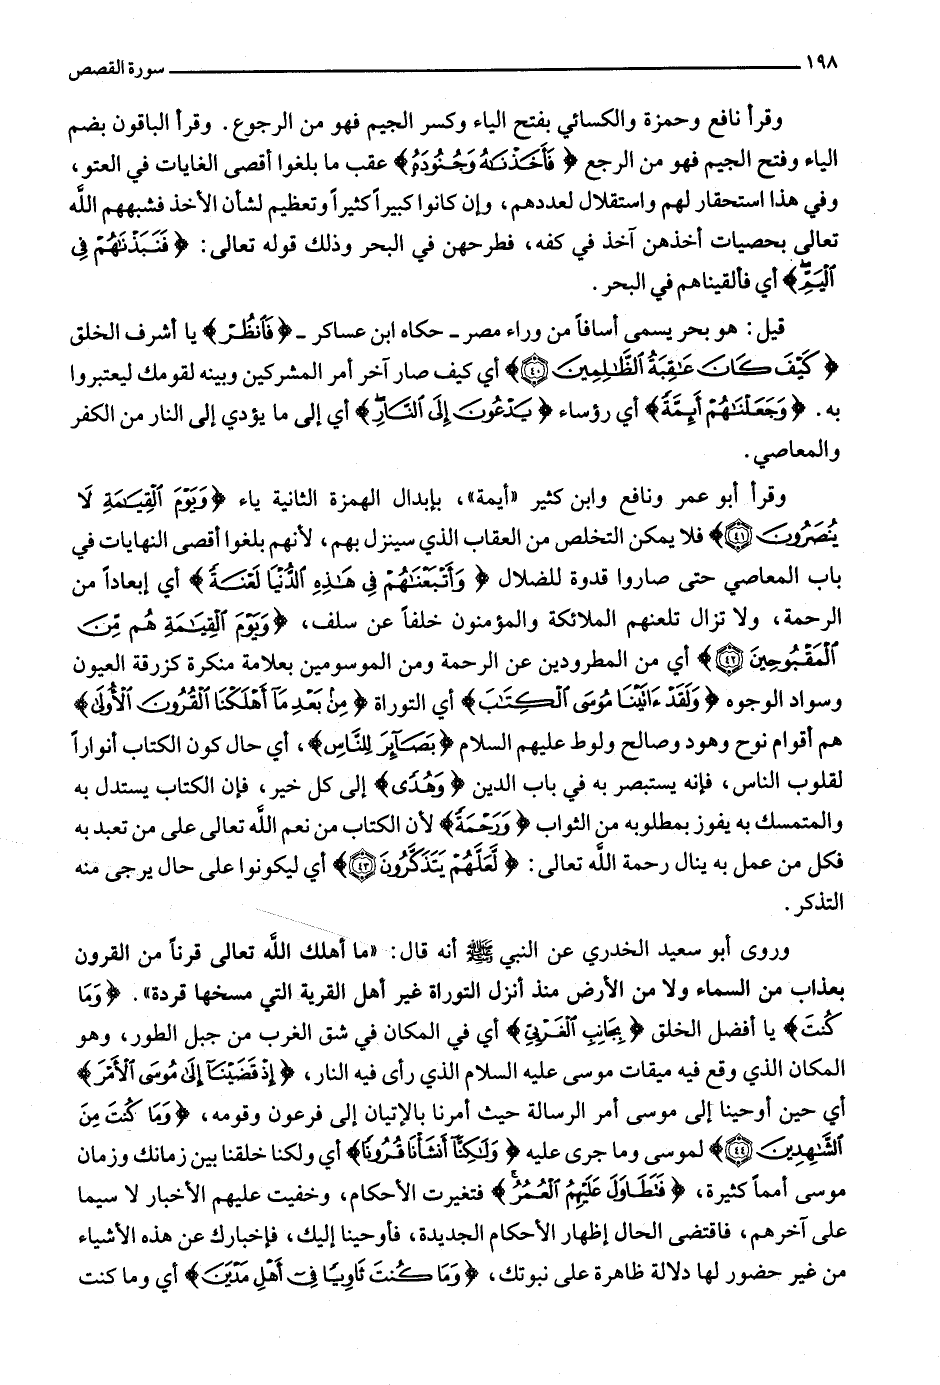 ١٩٨ سورة القصص
وقرأ نافع وحمزة والكسائي بفتح الياء وكسر الجيم فهو من الرجوع. وقرأ الباقون بضم
الياء وفتح الجيم فهو من الرجع ﴿ فَأَخَذْنَٰهُ وَجُنُودَهُۥ﴾ عقب ما بلغوا أقصى الغايات في العتو،
وفي هذا استحقار لهم واستقلال لعددهم، وإن كانوا كبيراً كثيراً وتعظيم لشأن الأخذ فشبههم اللَّه
تعالى بحصيات أخذهن آخذ في كفه، فطرحهن في البحر وذلك قوله تعالى: ﴿ فَنَبَذْنَٰهُمْ فِى
ٱلْيَمِّ ۖ﴾ أي فألقيناهم في البحر.
قيل: هو بحر يسمى أسافاً من وراء مصر ـ حكاه ابن عساكر ـ ﴿فَٱنظُرْ ﴾ يا أشرف الخلق
﴿ كَيْفَ كَانَ عَٰقِبَةُ ٱلظَّٰلِمِينَ ٤٠﴾ أي كيف صار آخر أمر المشركين وبينه لقومك ليعتبروا
به. ﴿ وَجَعَلْنَٰهُمْ أَئِمَّةً ﴾ أي رؤساء ﴿ يَدْعُونَ إِلَى ٱلنَّارِ ۖ﴾ أي إلى ما يؤدي إلى النار من الكفر
والمعاصي.
وقرأ أبو عمر ونافع وابن كثير «أيمة»، بإبدال الهمزة الثانية ياء ﴿وَيَوْمَ ٱلْقِيَٰمَةِ لَا
يُنصَرُونَ ٤١﴾ فلا يمكن التخلص من العقاب الذي سينزل بهم، لأنهم بلغوا أقصى النهايات في
باب المعاصي حتى صاروا قدوة للضلال ﴿ وَأَتْبَعْنَٰهُمْ فِى هَٰذِهِ ٱلدُّنْيَا لَعْنَةً ﴾ أي إبعاداً من
الرحمة، ولا تزال تلعنهم الملائكة والمؤمنون خلفاً عن سلف، ﴿وَيَوْمَ ٱلْقِيَٰمَةِ هُم مِّنَ
ٱلْمَقْبُوحِينَ ٤٢﴾ أي من المطرودين عن الرحمة ومن الموسومين بعلامة منكرة كزرقة العيون
وسواد الوجوه ﴿ وَلَقَدْ ءَاتَيْنَا مُوسَى ٱلْكِتَٰبَ﴾ أي التوراة ﴿ مِنۢ بَعْدِ مَآ أَهْلَكْنَا ٱلْقُرُونَ ٱلْأُولَىٰ﴾
هم أقوام نوح وهود وصالح ولوط عليهم السلام ﴿بَصَآئِرَ لِلنَّاسِ﴾، أي حال كون الكتاب أنواراً
لقلوب الناس، فإنه يستبصر به في باب الدين ﴿ وَهُدًى﴾ إلى كل خير، فإن الكتاب يستدل به
والمتمسك به يفوز بمطلوبه من الثواب ﴿ وَرَحْمَةً﴾ لأن الكتاب من نعم اللَّه تعالى على من تعبد به
فكل من عمل به ينال رحمة اللَّه تعالى: ﴿ لَّعَلَّهُمْ يَتَذَكَّرُونَ ٤٣﴾ أي ليكونوا على حال يرجى منه
التذكر.
وروى أبو سعيد الخدري عن النبي ﷺ أنه قال: «ما أهلك اللَّه تعالى قرناً من القرون
بعذاب من السماء ولا من الأرض منذ أنزل التوراة غير أهل القرية التي مسخها قردة». ﴿ وَمَا
كُنتَ﴾ يا أفضل الخلق ﴿ بِجَانِبِ ٱلْغَرْبِىِّ﴾ أي في المكان في شق الغرب من جبل الطور، وهو
المكان الذي وقع فيه ميقات موسى عليه السلام الذي رأى فيه النار، ﴿ إِذْ قَضَيْنَآ إِلَىٰ مُوسَى ٱلْأَمْرَ ﴾
أي حين أوحينا إلى موسى أمر الرسالة حيث أمرنا بالإتيان إلى فرعون وقومه، ﴿ وَمَا كُنتَ مِنَ
ٱلشَّٰهِدِينَ ٤٤﴾ لموسى وما جرى عليه ﴿ وَلَٰكِنَّآ أَنشَأْنَا قُرُونًا﴾ أي ولكنا خلقنا بين زمانك وزمان
موسى أمماً كثيرة، ﴿ فَتَطَاوَلَ عَلَيْهِمُ ٱلْعُمُرُ ۚ﴾ فتغيرت الأحكام، وخفيت عليهم الأخبار لا سيما
على آخرهم، فاقتضى الحال إظهار الأحكام الجديدة، فأوحينا إليك، فإخبارك عن هذه الأشياء
من غير حضور لها دلالة ظاهرة على نبوتك، ﴿ وَمَا كُنتَ ثَاوِيًا فِىٓ أَهْلِ مَدْيَنَ﴾ أي وما كنت